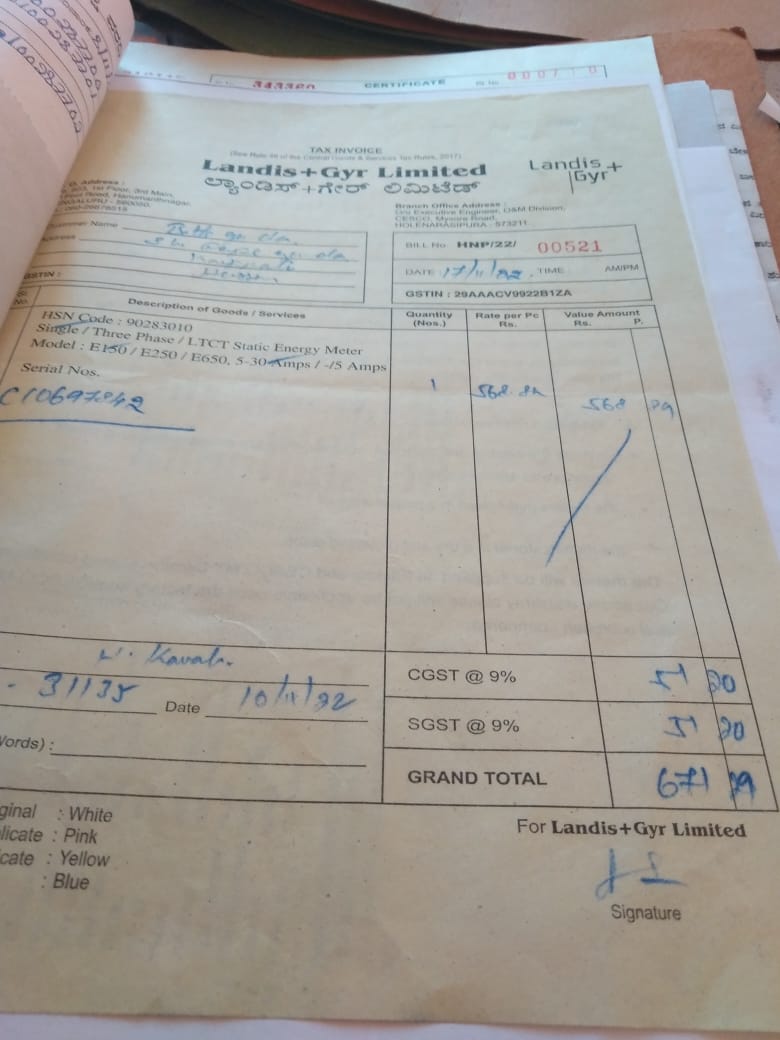 343360 CERTIFICATE
TAX INVOICE
(See Rule 46 of the Central Goods & Services Tax Rules, 2017)
Landis+Gyr Limited
ಲ್ಯಾಂಡಿಸ್+ಗೇರ್ ಲಿಮಿಟೆಡ್
Landis+
Gyr
Address :
1st Floor, 3rd Main,
Road, Hanumanthnagar,
Branch Office Address :
O/o Executive Engineer, O&M Division,
CESCO, Mysore Road,
HOLENARASIPURA - 573211
Customer Name
Address
GSTIN :
BILL No. HNP/22/ 00521
DATE 17/11/22 TIME AM/PM
GSTIN : 29AAACV9922B1ZA
Sl. No. Description of Goods / Services Quantity (Nos.) Rate per Pc Rs. Value Amount Rs. P.
HSN Code : 90283010
Single / Three Phase / LTCT Static Energy Meter
Model : E150 / E250 / E650, 5-30 Amps / -/5 Amps
Serial Nos.
1 568
C10697842
31135 Date 10/11/22
CGST @ 9% 51 20
SGST @ 9% 51 20
Words) :
GRAND TOTAL 671
ginal : White
licate : Pink
cate : Yellow
: Blue
For Landis+Gyr Limited
Signature